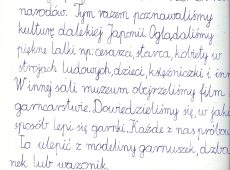 narodów. Tym razem poznawaliśmy
kulturę dalekiej Japonii. Oglądaliśmy
piękne lalki np: cesarza, starca, kobiety w
strojach ludowych, dzieci, księżniczki i inn
W innej sali muzeum obejrzeliśmy film
garncarstwie. Dowiedzieliśmy się, w jaki
sposób lepi się garnki. Każde z nas próbow
To ulepić z modeliny garnuszek, dzba
nek lub wazonik.